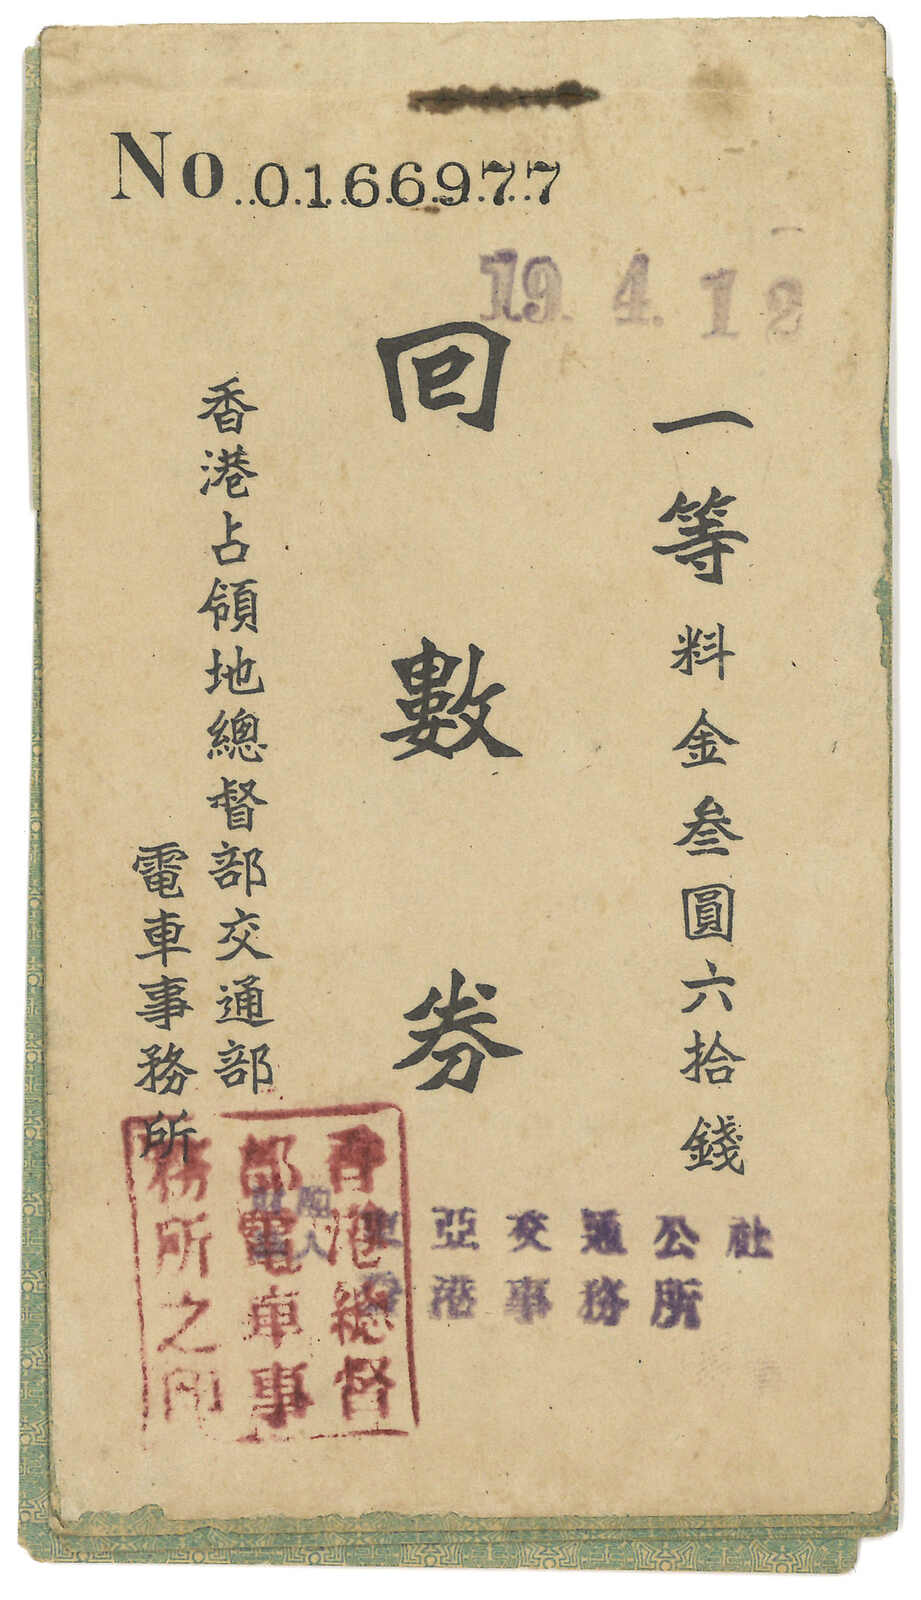 No 0166977
19. 4. 12
一等料金叁圓六拾錢
回數券
香港占領地總督部交通部
電車事務所
財團
法人
東亞交通公社
香港事務所
香港總督
部電車事
務所之印